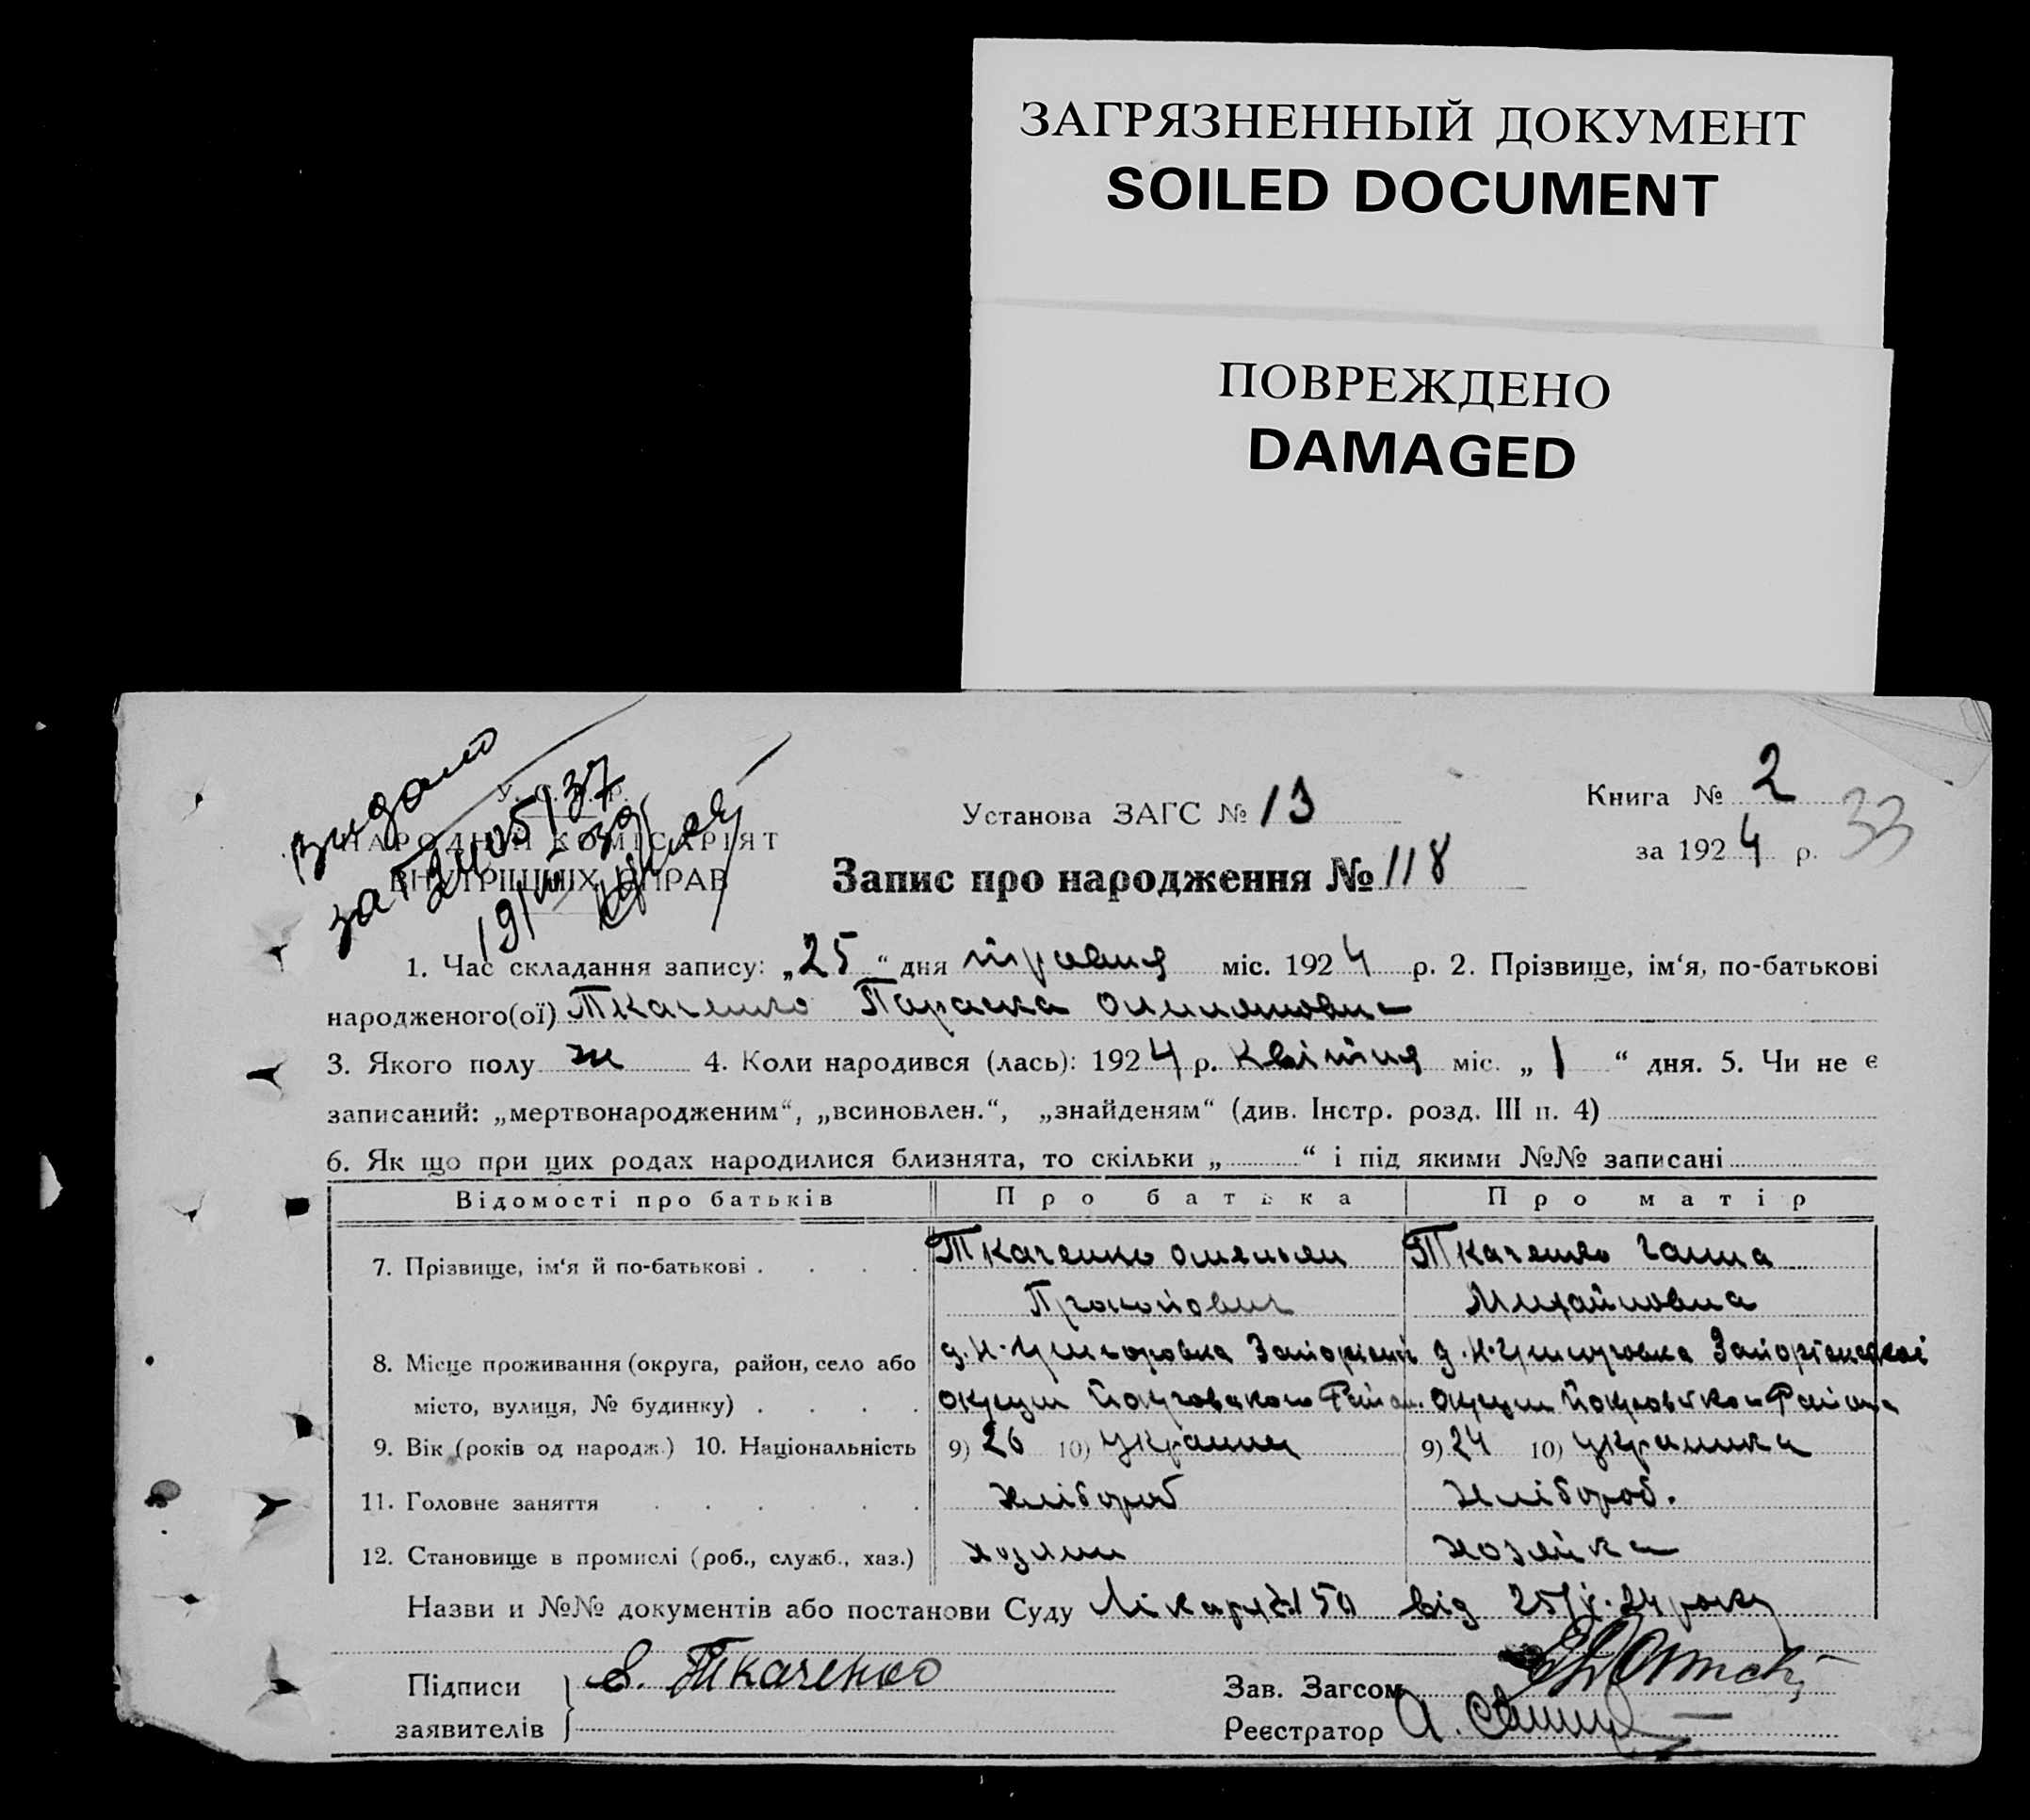 ЗАГРЯЗНЕННЫЙ ДОКУМЕНТ
SOILED DOCUMENT
ПОВРЕЖДЕНО
DAMAGED
У. С. Р. Р.
НАРОДНІЙ КОМІСАРІЯТ
ВНУТРІШНІХ СПРАВ
видано
за № 2405/37
19/
Установа ЗАГС № 13
Книга № 2
за 1924 р.
33
Запис про народження № 118
1. Час складання запису: „25“ дня травня міс. 1924 р. 2. Прізвище, ім‘я, по-батькові
народженого(ої) Ткаченко Параска
3. Якого полу ж 4. Коли народився (лась): 1924 р. Квітня міс. „1“ дня. 5. Чи не є
записаний: „мертвонародженим“, „всиновлен.“, „знайденям“ (див. Інстр. розд. III п. 4)
6. Як що при цих родах народилися близнята, то скільки „ “ і під якими №№ записані
Відомості про батьків Про батька Про матір
7. Прізвище, ім‘я й по-батькові . . . . Ткаченко Омельян Ткаченко Ганна
Прокопович Михайловна
8. Місце проживання (округа, район, село або
місто, вулиця, № будинку) . . . . округи Покровського Район. округи Покровського Района
9. Вік (років од народж.) 10. Національність 9) 26 10) Украинец 9) 24 10) украинка
11. Головне заняття . . . . . . хлібороб хлібороб.
12. Становище в промислі (роб., служб., хаз.) хозяин хозяйка
Назви и №№ документів або постанови Суду від 25/V.24 року
Підписи
заявителів
Ткаченко
Зав. Загсом
Реєстратор